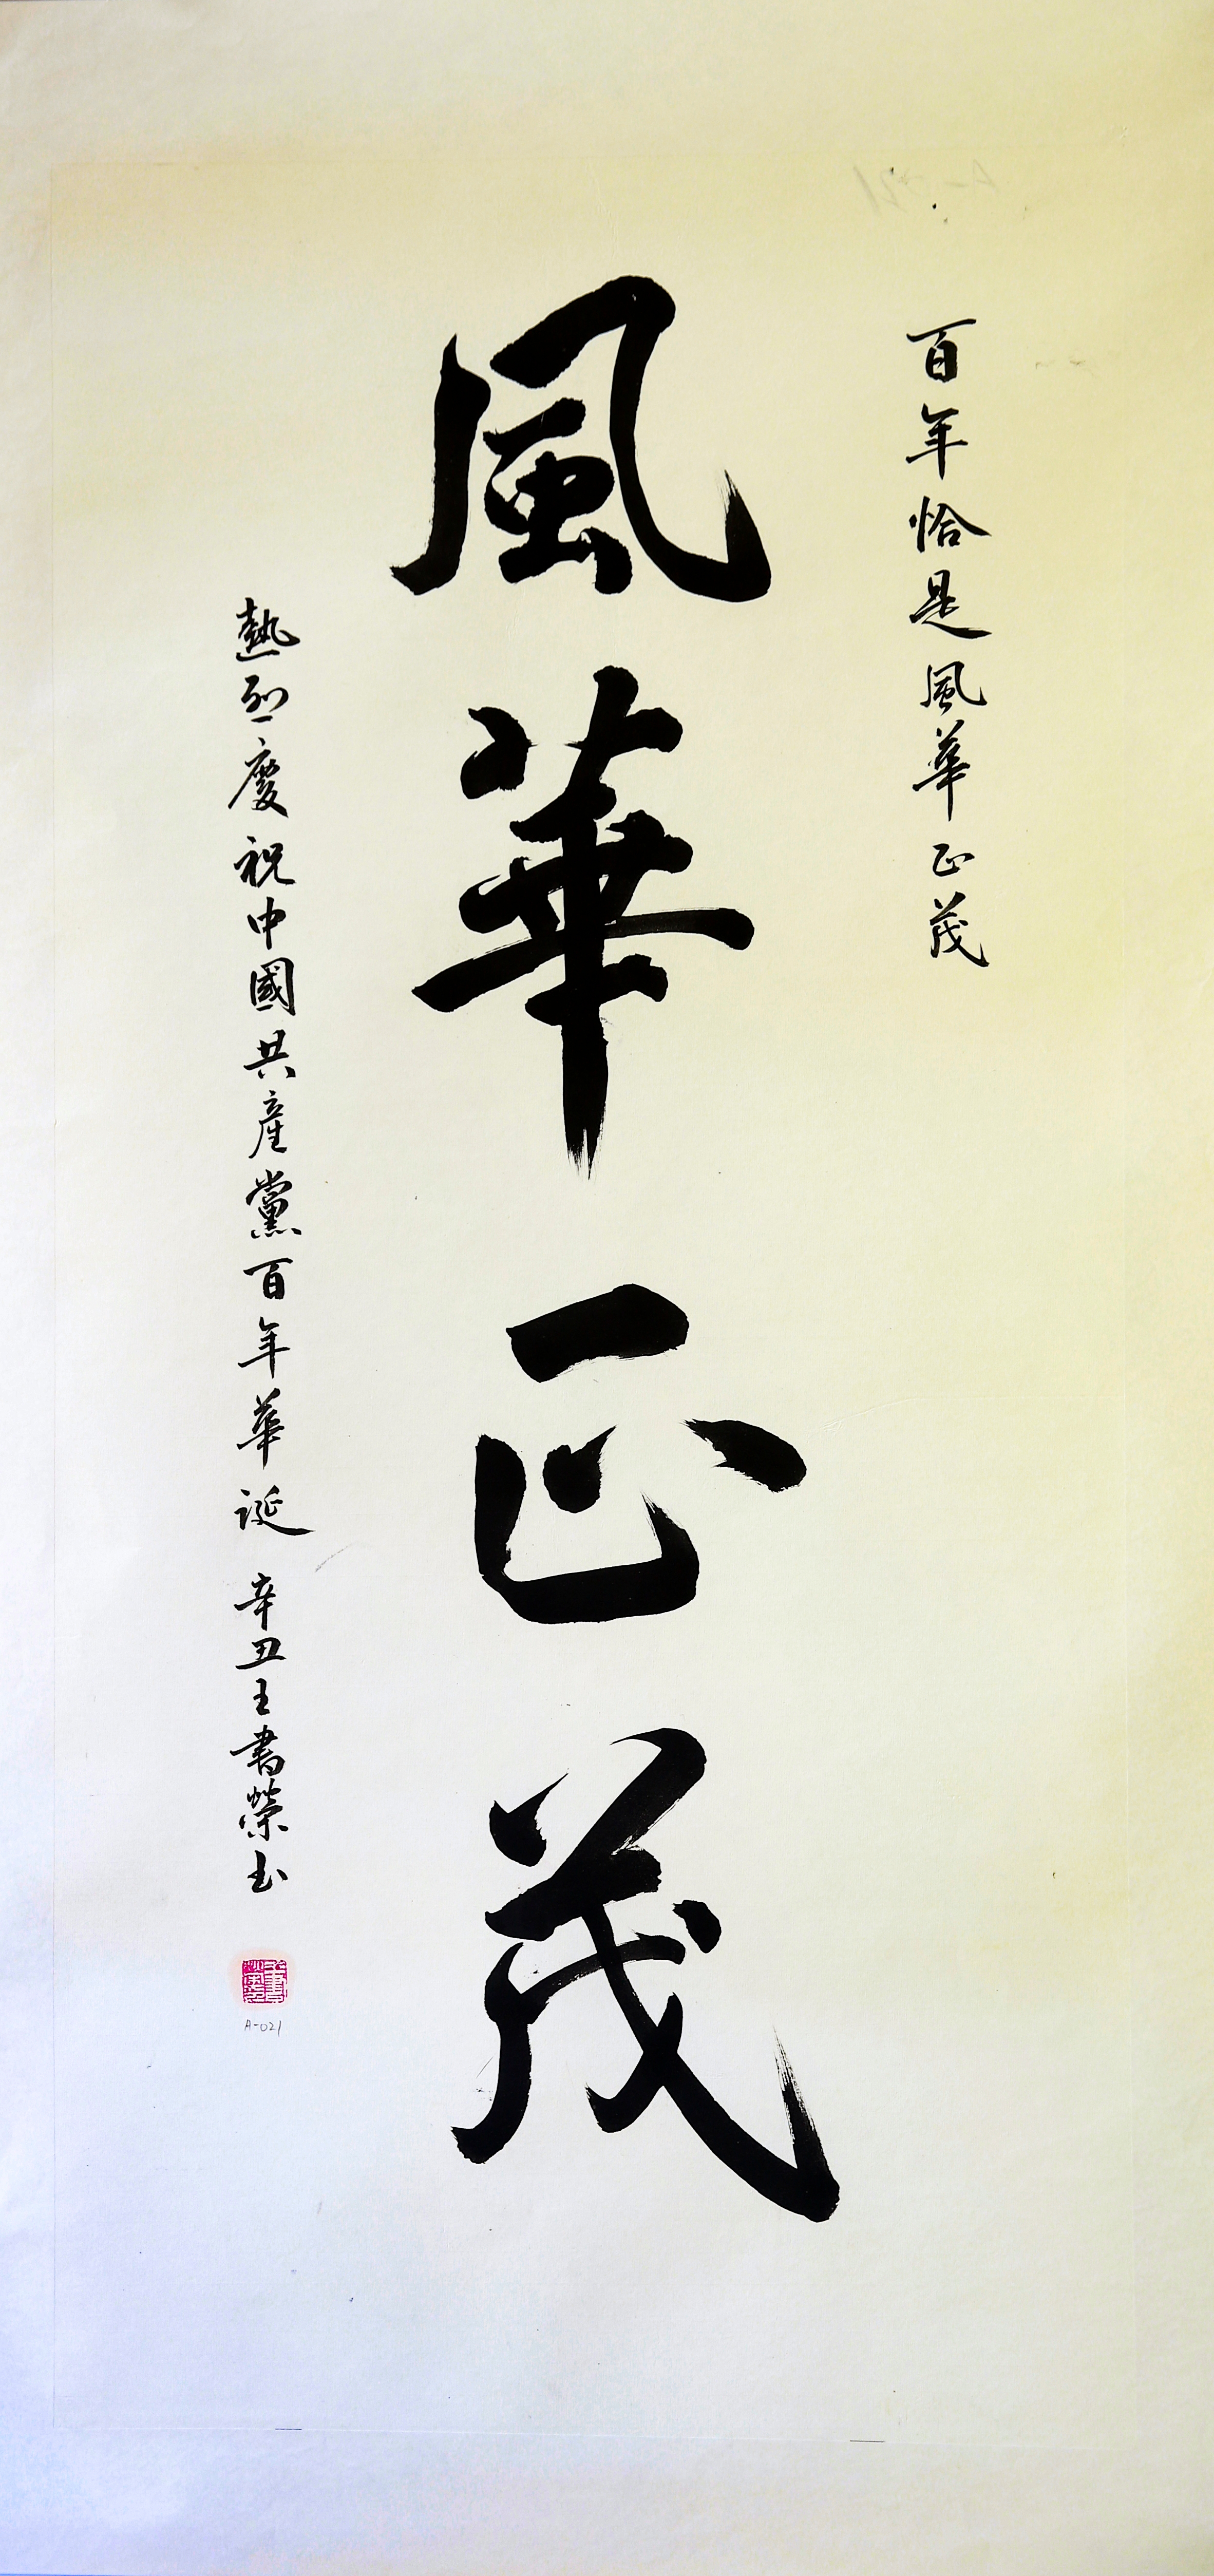 百年恰是風華正茂
風華正茂
熱烈慶祝中國共產黨百年華誕 辛丑王書榮书
A-021